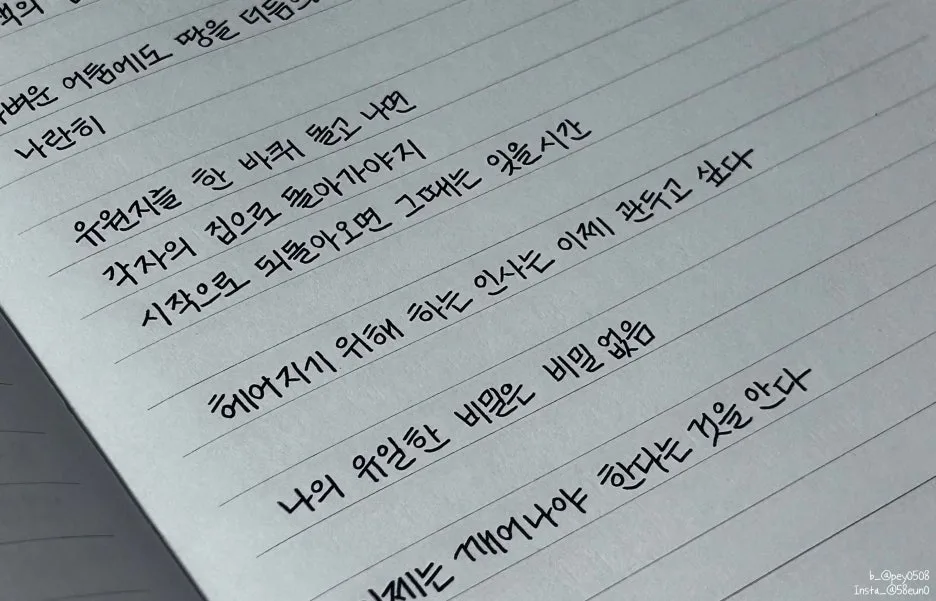 어둠에도 땅을
나란히
유원지를 한 바퀴 돌고 나면
각자의 집으로 돌아가야지
시작으로 되돌아오면 그때는 잊을 시간
헤어지기 위해 하는 인사는 이제 관두고 싶다
나의 유일한 비밀은 비밀 없음
깨어나야 한다는 것을 안다
b_@pey0508
Insta_@58eun0